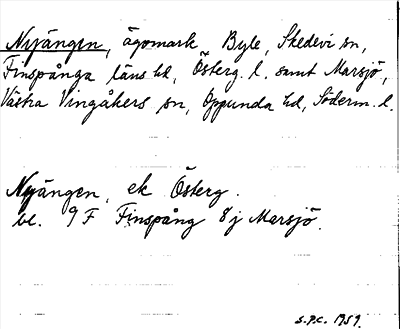 Nyängen, ägomark Byle, Skedevi sn,
Finspånga läns hd, Österg. l. samt Marsjö,
Västra Vingåkers sn, Oppunda hd, Söderm. l.
Nyängen, ek Österg.
bl. 9 F Finspång 8j Marsjö.
S.P.C. 1959.